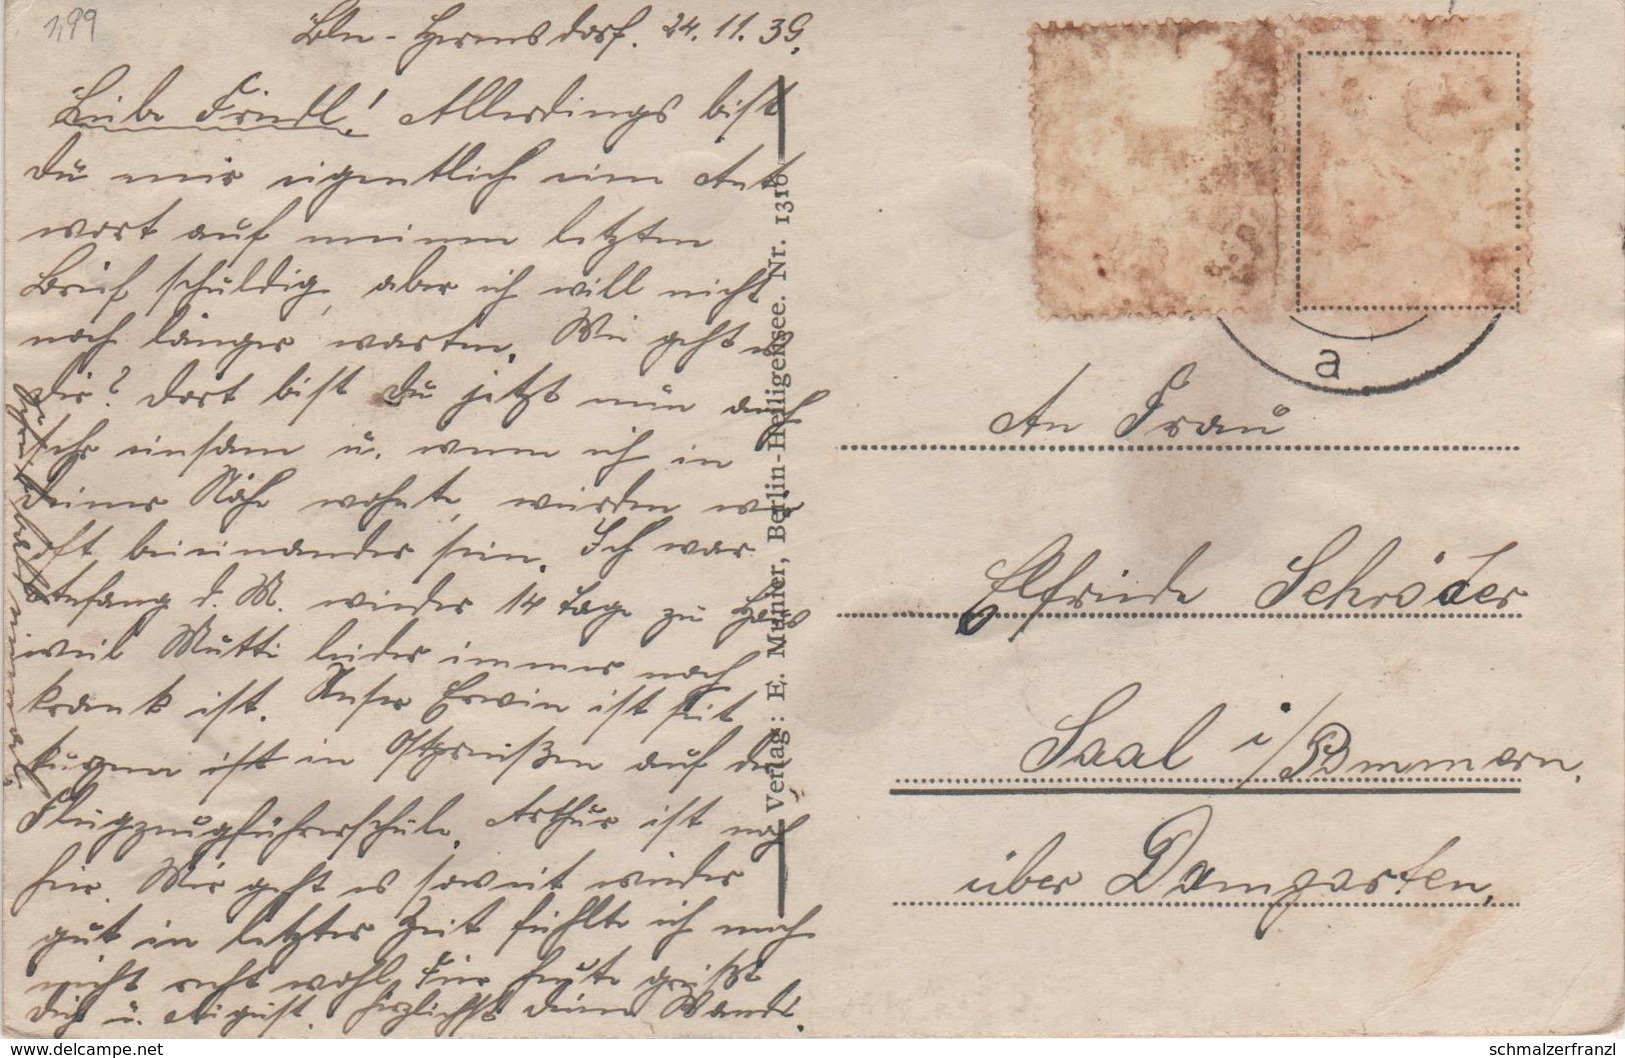 499
Bln-Hermsdorf. 24.11.39.
Liebe Friedl! Allerdings bist
du mir eigentlich eine Ant
wort auf meinen letzten
Brief schuldig, aber ich will nicht
noch länger warten. Wie geht es
dir? Dort bist Du jetzt nun auch
sehr einsam u. wenn ich in
deiner Nähe wohnte, würden wir
oft beieinander sein. Ich war
Anfang d. M. wieder 14 Tage zu Haus
weil Mutti leider immer noch
krank ist. Unser Erwin ist seit
kurzem ist in Ostpreußen auf der
Flugzeugführerschule. Arthur ist noch
hier. Mir geht es soweit wieder
gut in letzter Zeit fühlte ich mich
nicht recht wohl. Für heute grüßt
Dich u. August herzlichst deine
Verlag: E. Munier, Berlin-Heiligensee. Nr. 1316
a
An Frau
Elfriede Schröder
Saal i/Pommern.
über Damgarten.
www.delcampe.net
schmalzerfranzl